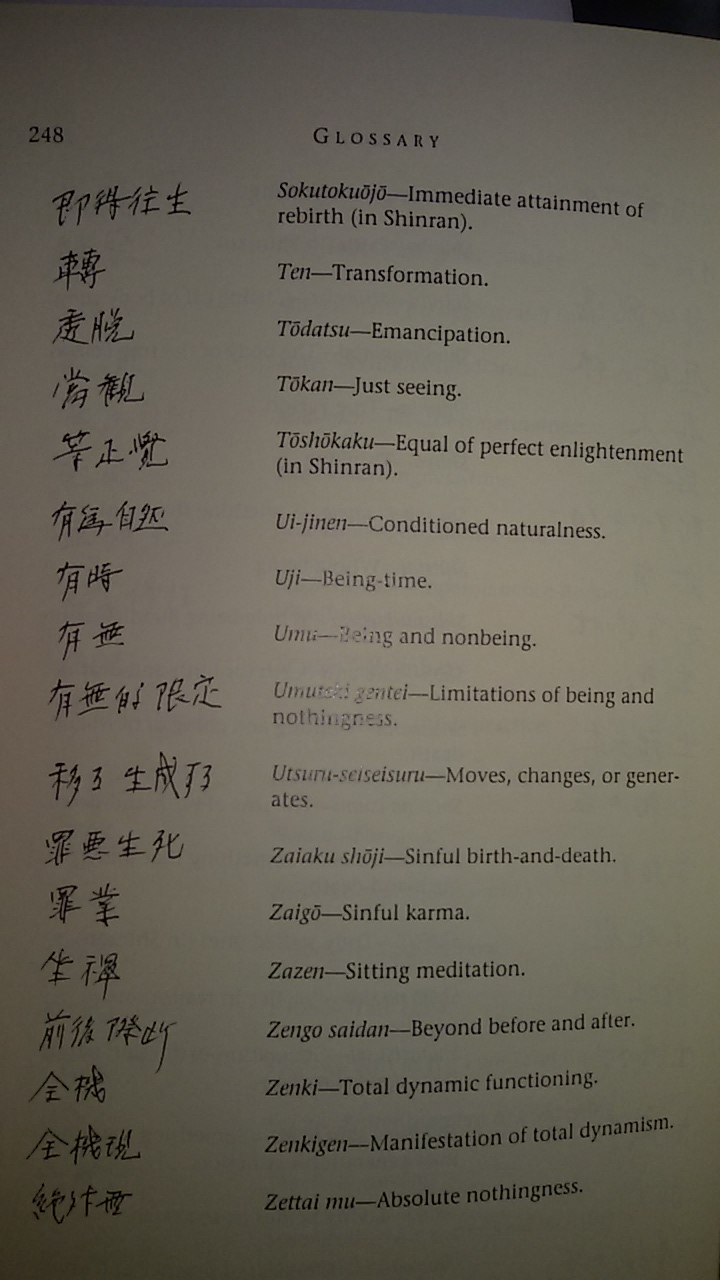 248 GLOSSARY
即得往生 Sokutokuōjō—Immediate attainment of
rebirth (in Shinran).
轉 Ten—Transformation.
透脱 Tōdatsu—Emancipation.
當観 Tōkan—Just seeing.
等正覺 Tōshōkaku—Equal of perfect enlightenment
(in Shinran).
有為自然 Ui-jinen—Conditioned naturalness.
有時 Uji—Being-time.
有無 Umu—Being and nonbeing.
有無的限定 Umuteki gentei—Limitations of being and
nothingness.
移る生成する Utsuru-seiseisuru—Moves, changes, or gener-
ates.
罪悪生死 Zaiaku shōji—Sinful birth-and-death.
罪業 Zaigō—Sinful karma.
坐禅 Zazen—Sitting meditation.
前後際断 Zengo saidan—Beyond before and after.
全機 Zenki—Total dynamic functioning.
全機現 Zenkigen—Manifestation of total dynamism.
絶対無 Zettai mu—Absolute nothingness.